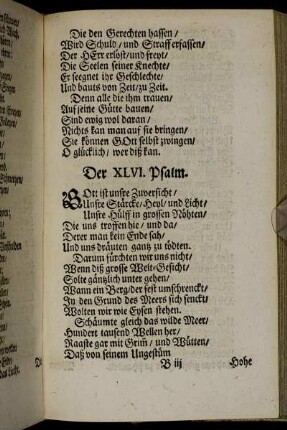 Die den Gerechten hassen/
Wird Schuld/ und Straff erfassen/
Der HErr erlöst/ und freyt/
Die Seelen seiner Knechte/
Er seegnet ihr Geschlechte/
Und bauts von Zeit/ zu Zeit.
Denn alle die ihm trauen/
Auf seine Gütte bauen/
Sind ewig wol daran/
Nichts kan man auf sie bringen/
Sie können GOtt selbst zwingen/
O glücklich/ wer diß kan.
Der XLVI. Psalm.
GOtt ist unsre Zuversicht/
Unsre Stärcke/ Heyl/ und Licht/
Unsre Hülff in grossen Nöhten/
Die uns troffen hie/ und da/
Derer man kein Ende sah/
Und uns dräuten gantz zu tödten.
Darum fürchten wir uns nicht/
Wenn diß grosse Welt-Gesicht/
Solte gäntzlich unter gehen/
Wann ein Berg/ der fest umschrenckt/
In den Grund des Meers sich senckt/
Wolten wir wie Eysen stehen.
Schäumte gleich das wilde Meer/
Hundert tausend Wellen her/
Raaste gar mit Grim̃/ und Wütten/
Daß von seinem Ungestüm
B iij Hohe